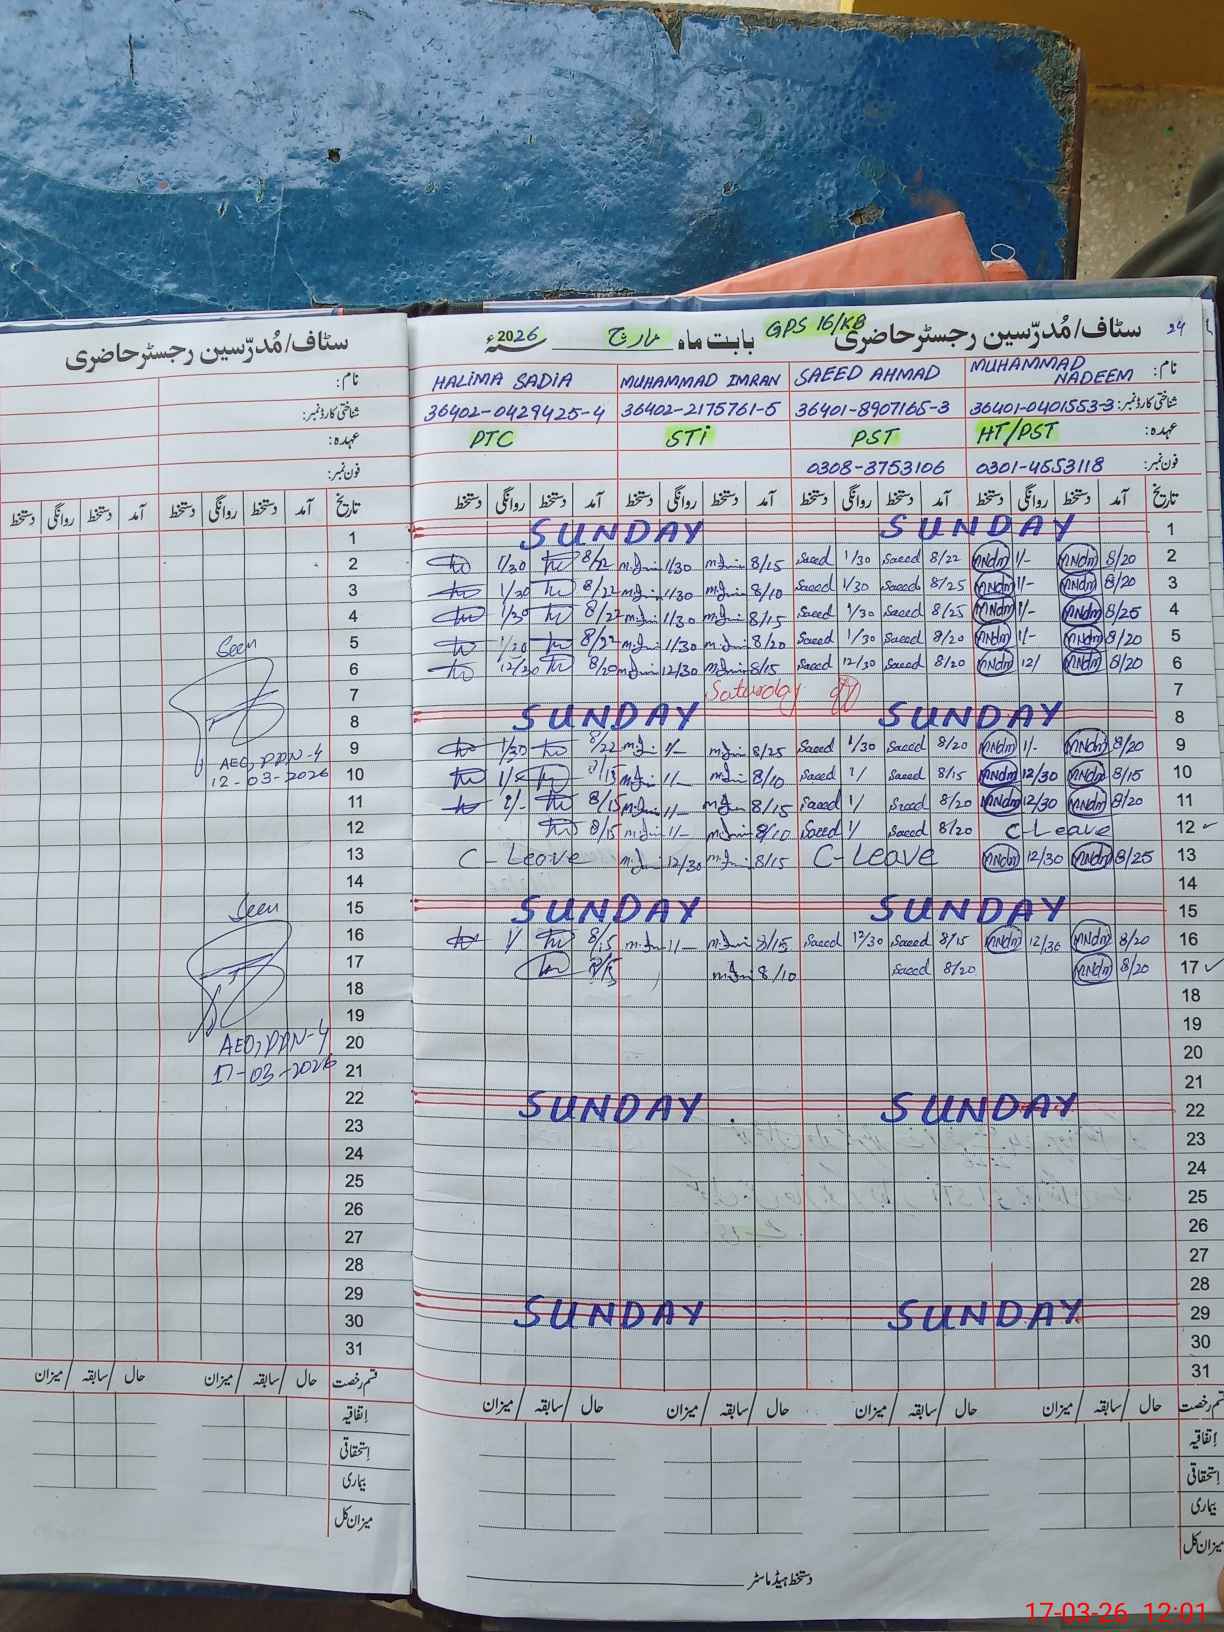 سٹاف/مُدرّسین رجسٹر حاضری
نام:
شناختی کارڈ نمبر:
عہدہ:
فون نمبر:
تاریخ آمد دستخط روانگی دستخط آمد دستخط روانگی دستخط
1
2
3
4
5
6
7
8
9
10
11
12
13
14
15
16
17
18
19
20
21
22
23
24
25
26
27
28
29
30
31
Seen
AEO, PPN-4
12-03-2026
Seen
AEO, PPN-4
17-03-2026
قسم رخصت حال/سابقہ/میزان حال/سابقہ/میزان
اِتفاقیہ
اِستحقاقی
بیماری
میزان کل
24
سٹاف/مُدرّسین رجسٹر حاضری GPS 16/KB بابت ماہ مارچ سنہ 2026ء
نام: MUHAMMAD NADEEM SAEED AHMAD MUHAMMAD IMRAN HALIMA SADIA
شناختی کارڈ نمبر: 36401-0401553-3 36401-8907165-3 36402-2175761-5 36402-0429425-4
عہدہ: HT/PST PST STi PTC
فون نمبر: 0301-4553118 0308-3753106
تاریخ آمد دستخط روانگی دستخط آمد دستخط روانگی دستخط آمد دستخط روانگی دستخط آمد دستخط روانگی دستخط
SUNDAY SUNDAY 1
1/30 8/22 1/30 8/15 Saeed 1/30 Saeed 8/22 MNdm 1/- MNdm 8/20 2
1/30 8/22 1/30 8/10 Saeed 1/30 Saeed 8/25 MNdm 1/- MNdm 8/20 3
1/30 8/22 1/30 8/15 Saeed 1/30 Saeed 8/25 MNdm 1/- MNdm 8/25 4
8/22 1/30 8/20 Saeed 1/30 Saeed 8/20 MNdm 1/- MNdm 8/20 5
8/20 12/30 8/15 Saeed 12/30 Saeed 8/20 MNdm 12/ MNdm 8/20 6
Saturday 7
SUNDAY SUNDAY 8
1/30 8/22 1/- 8/25 Saeed 1/30 Saeed 8/20 MNdm 1/- MNdm 8/20 9
1/- 8/10 Saeed 1/ Saeed 8/15 MNdm 12/30 MNdm 8/15 10
8/15 1/- 8/15 Saeed 1/ Saeed 8/20 MNdm 12/30 MNdm 8/20 11
8/15 1/- 8/10 Saeed 1/ Saeed 8/20 C-Leave 12
C-Leave 12/30 8/15 C-Leave MNdm 12/30 MNdm 8/25 13
14
SUNDAY SUNDAY 15
1/ 8/15 1/- 8/15 Saeed 12/30 Saeed 8/15 MNdm 12/30 MNdm 8/20 16
8/10 Saeed 8/20 MNdm 8/20 17
18
19
20
21
SUNDAY SUNDAY 22
23
24
25
26
27
28
SUNDAY SUNDAY 29
30
31
قسم رخصت حال/سابقہ/میزان حال/سابقہ/میزان حال/سابقہ/میزان حال/سابقہ/میزان
اِتفاقیہ
اِستحقاقی
بیماری
میزان کل
دستخط ہیڈ ماسٹر
17-03-26 12:01